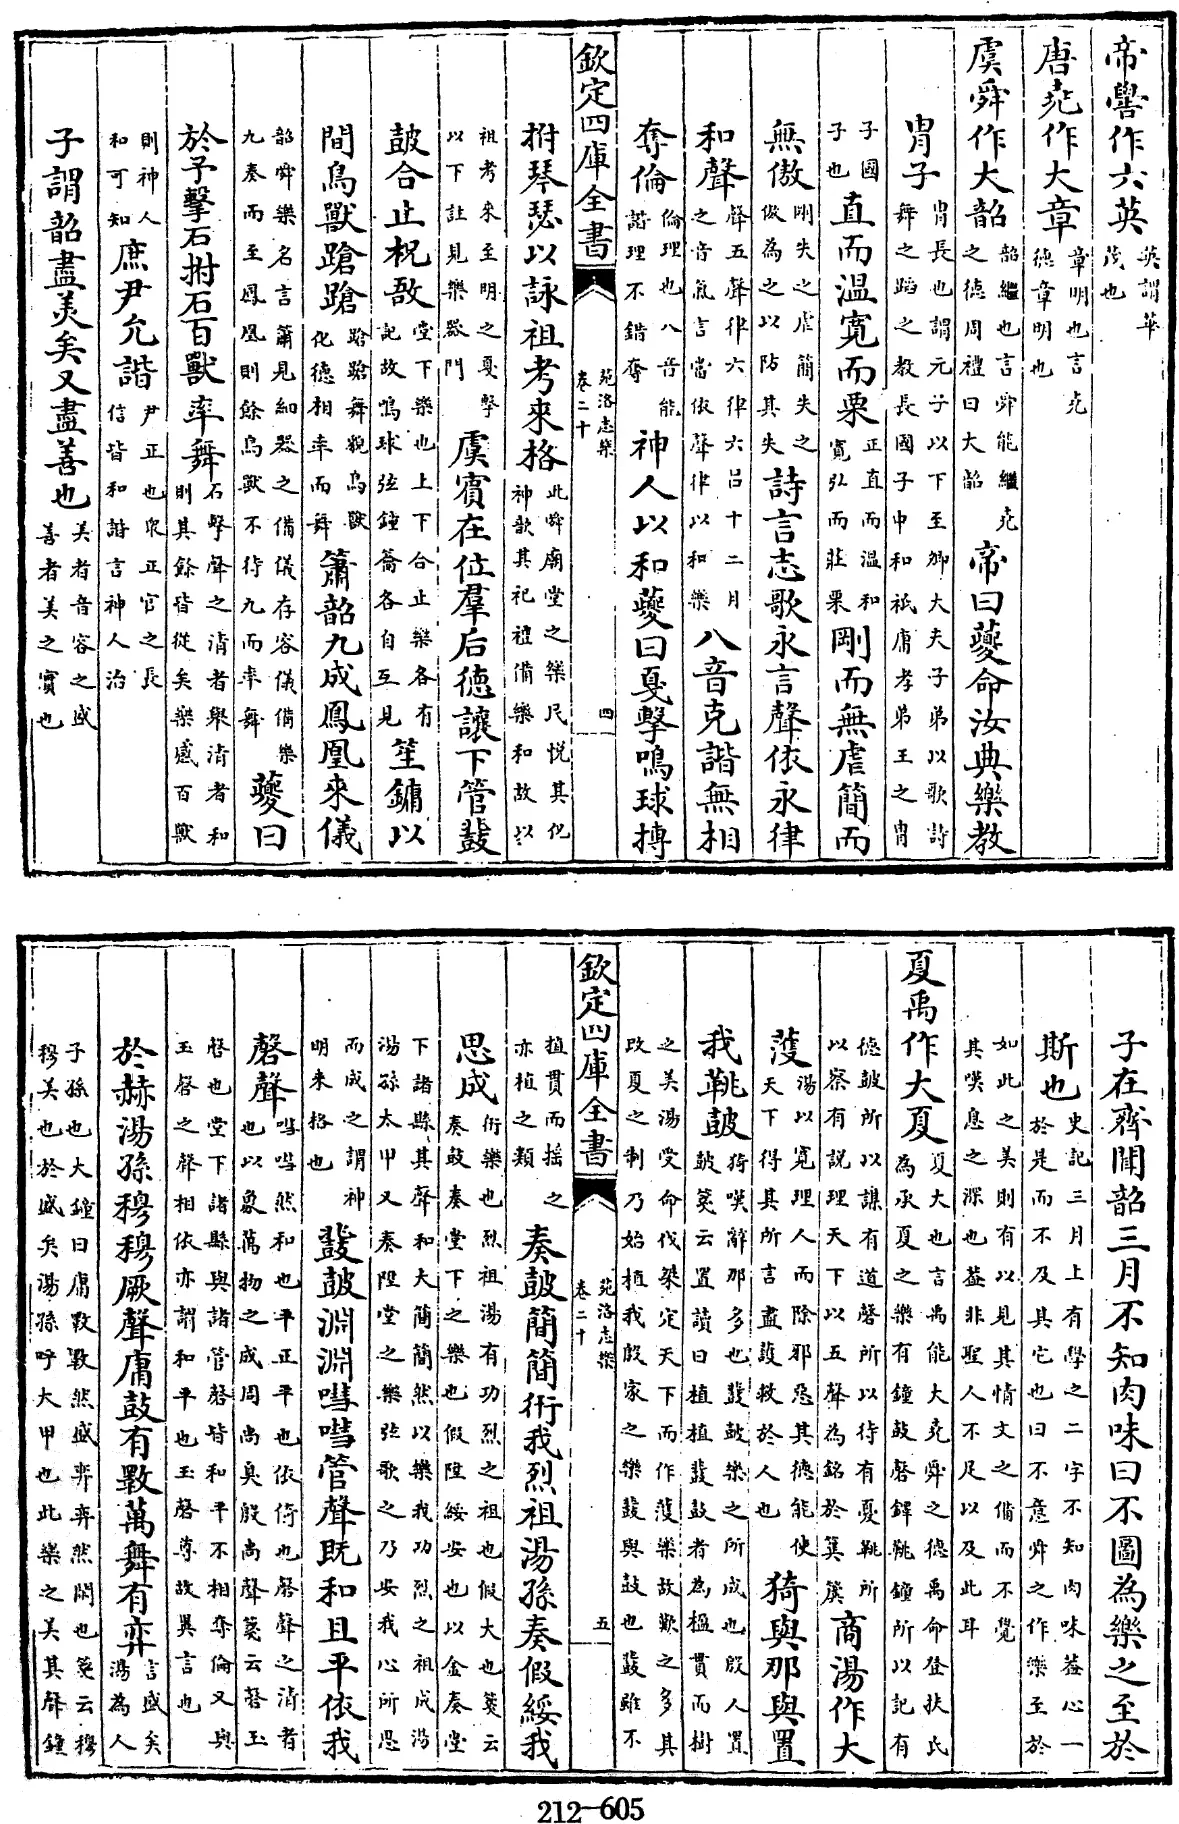 帝嚳作六英英謂華茂也
唐堯作大章章明也言堯德章明也
虞舜作大韶韶繼也言舜能繼堯之德周禮曰大韶帝曰夔命汝典樂教
胄子胄長也謂元子以下至卿大夫子弟以歌詩舞之蹈之教長國子中和祗庸孝弟王之胄
子國子也直而温寛而栗正直而温和寛弘而莊栗剛而無虐簡而
無傲剛失之虐簡失之傲為之以防其失詩言志歌永言聲依永律
和聲聲五聲律六律六呂十二月之音氣言當依聲律以和樂八音克諧無相
奪倫倫理也八音能諧理不錯奪神人以和夔曰戛擊鳴球搏
欽定四庫全書 苑洛志樂 卷二十 四
拊琴瑟以詠祖考來格此舜廟堂之樂民悦其化神歆其祀禮備樂和故以
祖考來至明之戛擊以下註見樂器門虞賓在位羣后德讓下管鼗
鼓合止柷敔堂下樂也上下合止樂各有記故鳴球弦鐘籥各自互見笙鏞以
間鳥獸蹌蹌蹌蹌舞貌鳥獸化德相率而舞簫韶九成鳳凰來儀
韶舜樂名言簫見細器之備儀存容儀備樂九奏而至鳳凰則餘鳥獸不待九而率舞夔曰
於予擊石拊石百獸率舞石磬聲之清者舉清者和則其餘皆從矣樂感百獸
則神人和可知庶尹允諧尹正也衆正官之長信皆和諧言神人治
子謂韶盡美矣又盡善也美者音容之盛善者美之實也
子在齊聞韶三月不知肉味曰不圖為樂之至於
斯也史記三月上有學之二字不知肉味葢心一於是而不及其它也曰不意舜之作樂至於
如此之美則有以見其情文之備而不覺其嘆息之深也葢非聖人不足以及此耳
夏禹作大夏夏大也言禹能大堯舜之德禹命登扶氏為承夏之樂有鐘鼓磬鐸鞉鐘所以記有
德鼓所以謀有道磬所以待有憂鞉所以察有説理天下以五聲為銘於簨簴商湯作大
濩湯以寛理人而除邪惡其德能使天下得其所言盡護救於人也猗與那與置
我鞉鼓猗嘆辭那多也鼗鼓樂之所成也殷人置鼓箋云置讀曰植植鼗鼓者為楹貫而樹
之美湯受命伐桀定天下而作濩樂故歎之多其改夏之制乃始植我殷家之樂鼗與鼓也鼗雖不
欽定四庫全書 苑洛志樂 卷二十 五
植貫而揺之亦植之類奏鼓簡簡衎我烈祖湯孫奏假綏我
思成衎樂也烈祖湯有功烈之祖也假大也箋云奏鼓奏堂下之樂也假陞綏安也以金奏堂
下諸縣其聲和大簡簡然以樂我功烈之祖成湯湯孫太甲又奏陞堂之樂弦歌之乃安我心所思
而成之謂神明來格也鼗鼓淵淵嘒嘒管聲既和且平依我
磬聲嘒嘒然和也平正平也依倚也磬聲之清者也以象萬物之成周尚臭殷尚聲箋云磬玉
磬也堂下諸縣與諸管磬皆和平不相奪倫又與玉磬之聲相依亦謂和平也玉磬尊故異言也
於赫湯孫穆穆厥聲庸鼓有斁萬舞有奕言盛矣湯為人
子孫也大鐘曰庸斁斁然盛弈弈然閑也箋云穆穆美也於盛矣湯孫呼大甲也此樂之美其聲鐘
212-605